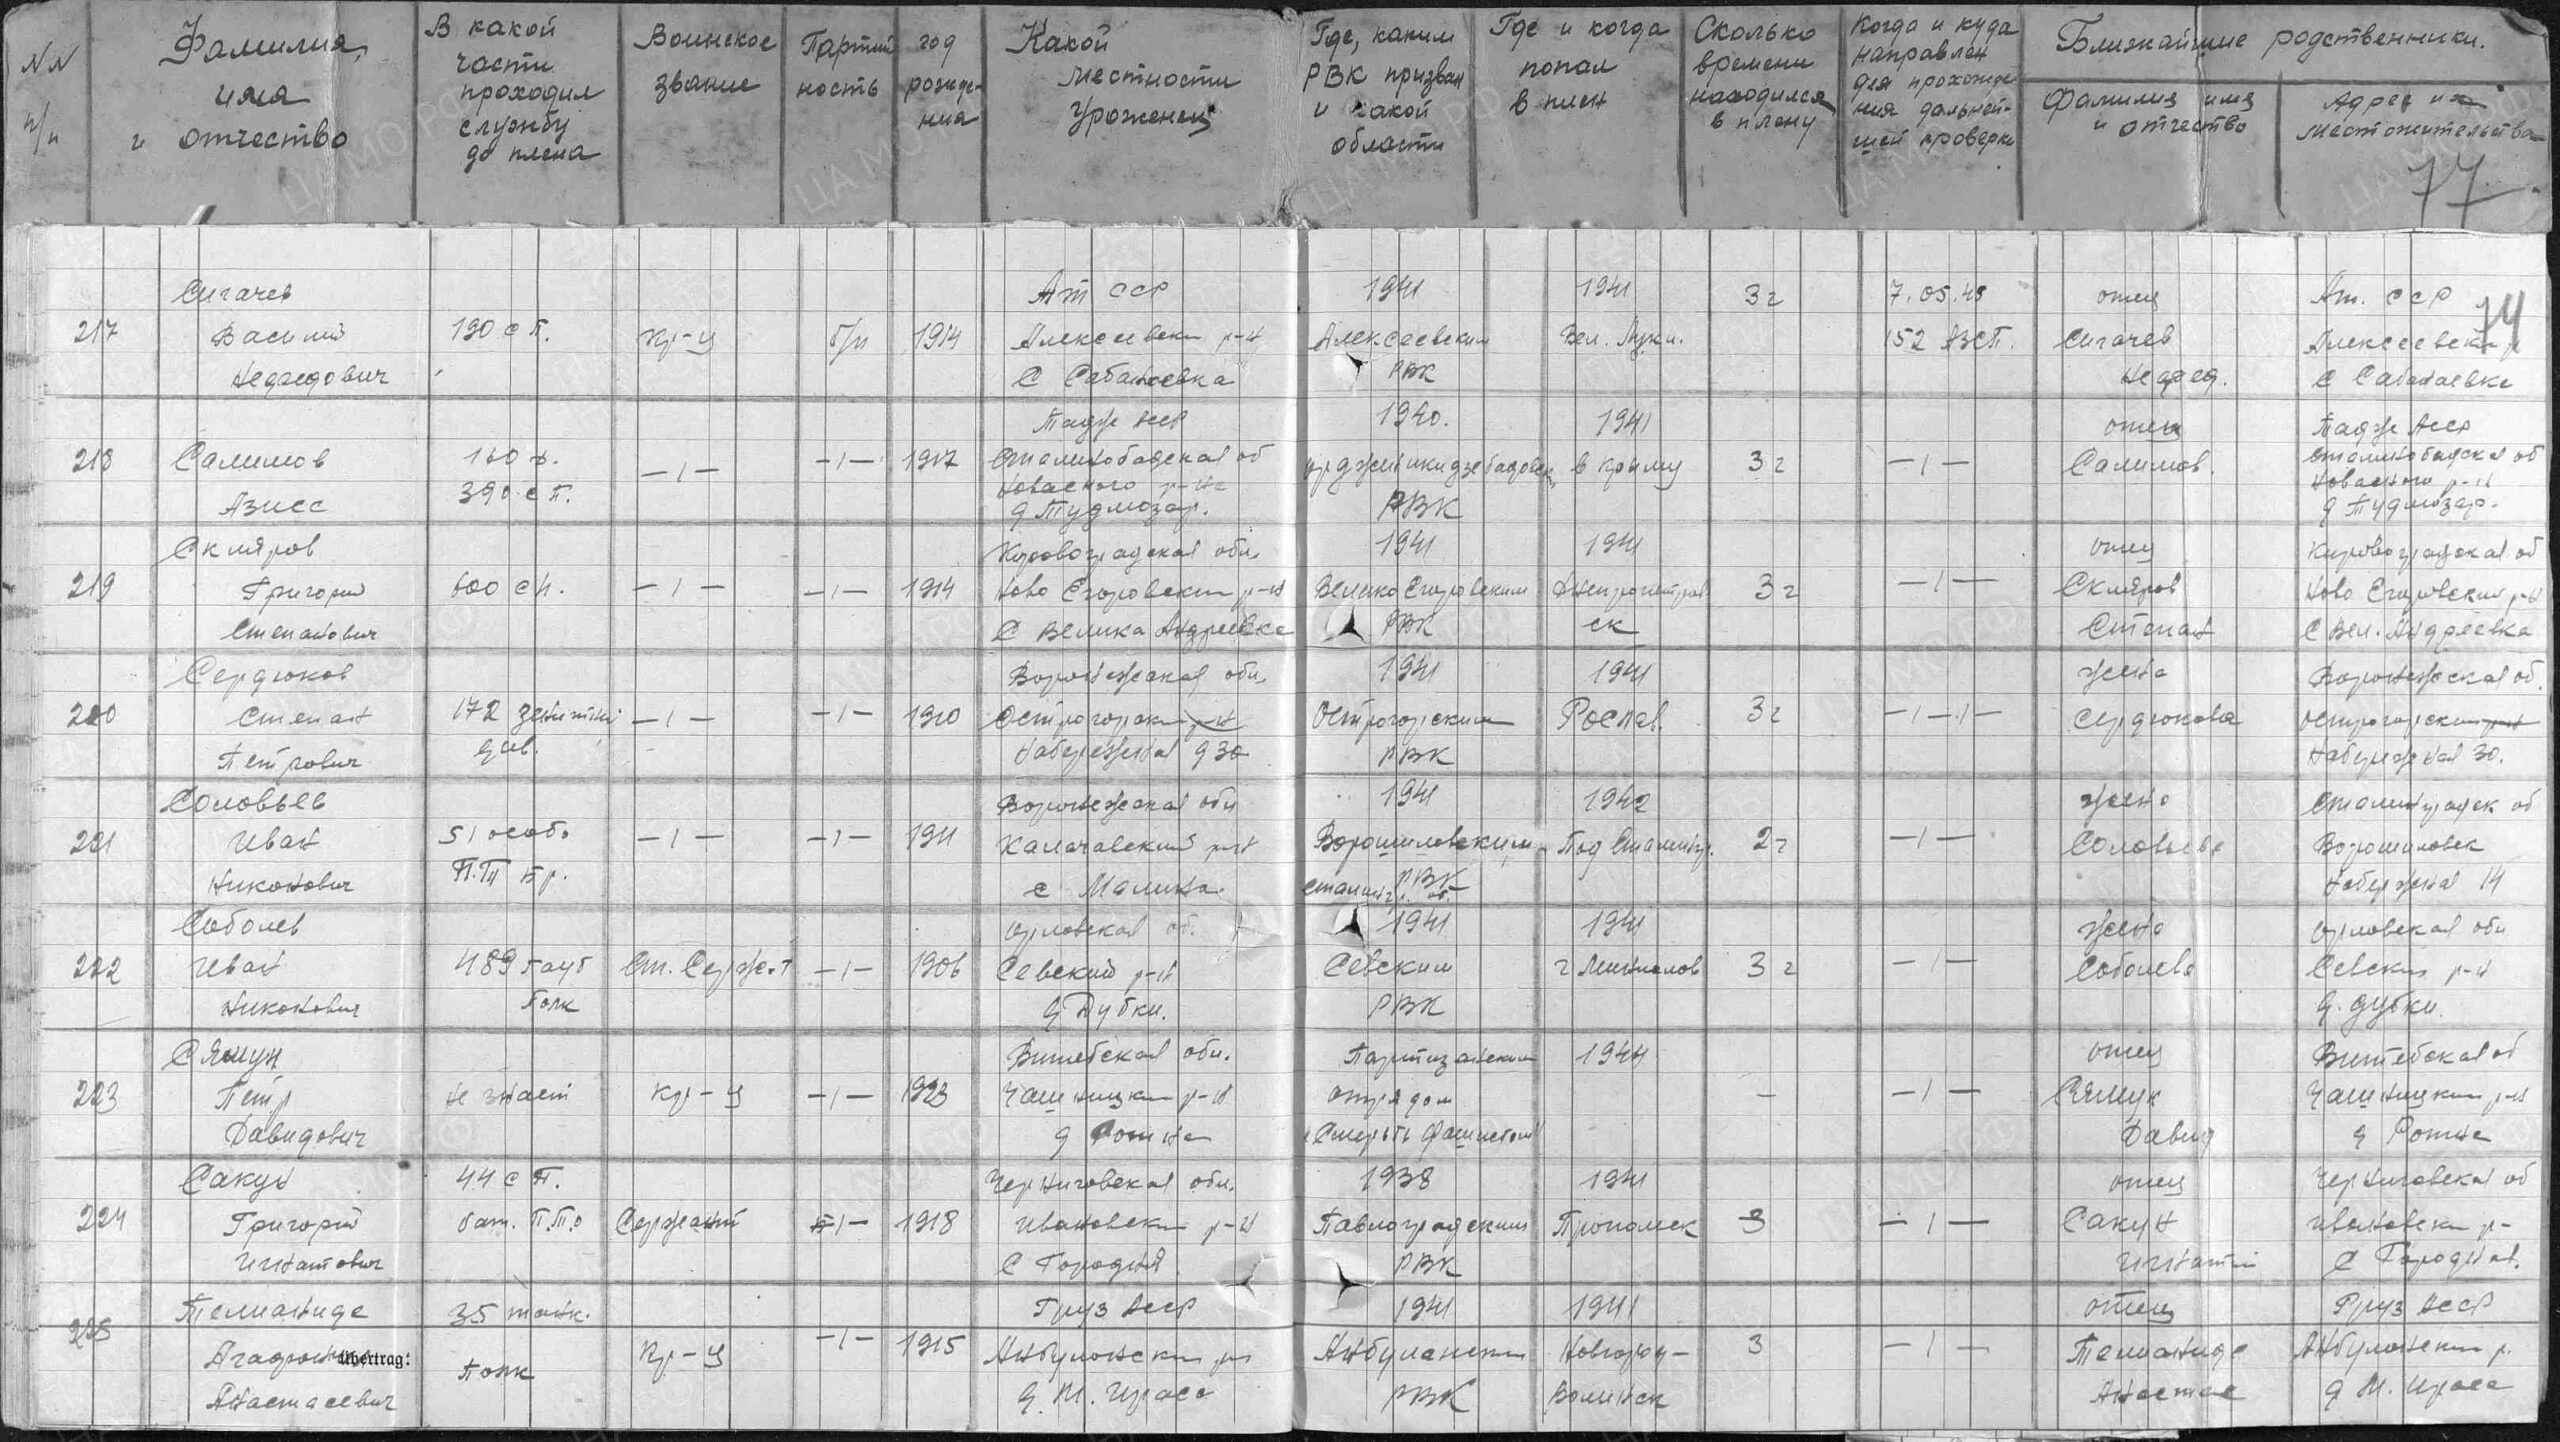 NN п/п
Фамилия, имя и отчество
В какой части проходил службу до плена
Воинское звание
Партийность
год рождения
Какой местности уроженец
Где, каким РВК призван и какой области
Где и когда попал в плен
Сколько времени находился в плену
Когда и куда направлен для прохождения дальнейшей проверки
Ближайшие родственники.
Фамилия имя и отчество
Адрес их местожительства
77.
74
Сигачев Ат ССР 1941 1941 3 г 7.05.45 отец Ат. ССР
217 Василий 190 с п. кр-ц б/п 1914 Алексеевски р-н Алексеевским Вел. Луки. 152 АЗСП. Сигачев Алексеевски р
С Сабанаевка РВК С Сабанаевка
Тадж АССР 1940. 1941 отец Тадж АССР
218 Салимов —1— —1— 1917 Сталинобадская об в Крыму 3 г —1— Салимов. Сталинобадская об
Азисс 390 с п. РВК
Скляров Кировоградская обл, 1941 1941 отец Кировоградская об
219 Григорий 600 с п. —1— —1— 1914 Ново Егоровски р-н Велико Егоровским Днепропетров 3 г —1— Скляров Ново Егоровский р-н
Степанович С Велика Андреевка РВК ск Степан С Вел. Андреевка
Сердюков Воронежская обл, 1941 1941 жена Воронежская об.
220 Степан 172 зенитный —1— —1— 1910 Острогорски р-н Острогорским Рослав. 3 г —1—1— Сердюкова Острогорский р-н
Петрович див. Набережная д 30 РВК Набережная 30.
Соловьев Воронежская обл 1941 1942 жена Сталинградск об
221 Иван 51 особо —1— —1— 1911 Калачавский р-н Ворошиловским Под Сталингр. 2 г —1— Соловьева Ворошиловск
Никонович П.Т бр. с Малина. РВК Набережна 14
Сталингр. об.
Соболев Орловская об. 1941 1941 жена Орловская обл
222 Иван 489 гауб Ст. Сержант —1— 1906 Севский р-н Севским 3 г —1— Соболева Севски р-н
Никонович полк д Дубки. РВК д. Дубки.
Сямун Витебская обл. Партизанским 1944 отец Витебская об
223 Петр не знает кр-ц —1— 1923 Чашницки р-н отрядом — —1— Чашницким р-н
Давидович "Смерть фашистам" Давид
Сакун 44 с п. Черниговская обл. 1938 1941 отец Черниговская об
224 Григорий бат. П.Т.О Сержант —1— 1918 Ивановски р-н Павлоградским 3 —1— Сакун Ивановски р-
Игнатович С Городня РВК Игнатий С Городня.
35 танк. Груз АССР 1941 1941 отец Груз АССР
225 Übertrag: полк кр-ц —1— 1915 Новгород- 3 —1—
Анастасевич РВК Волинск Анастас